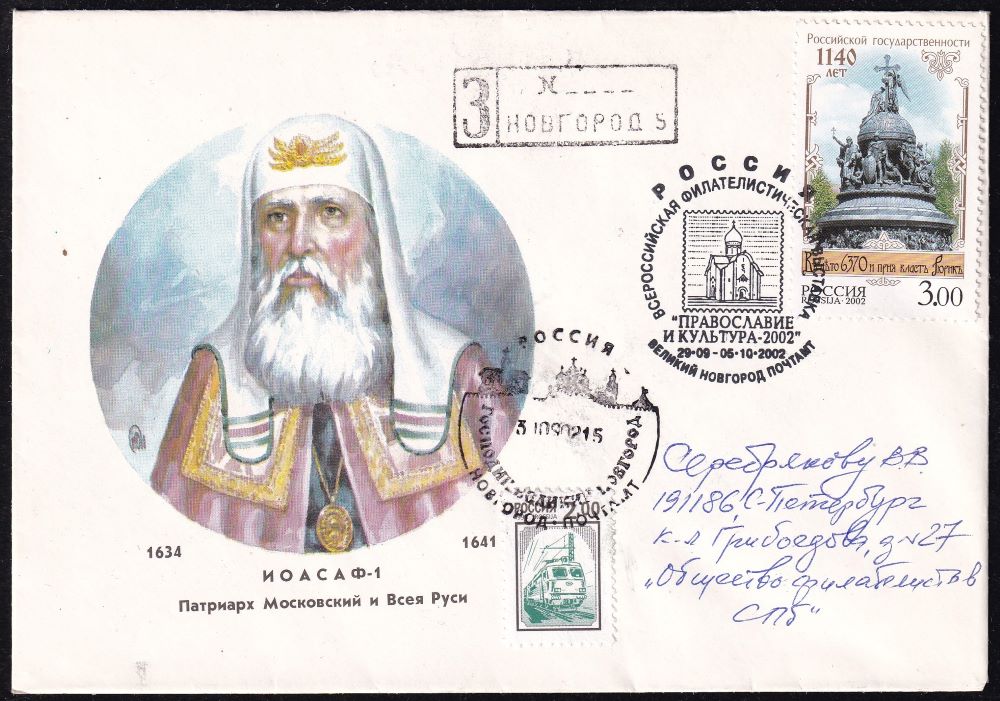 З
N
НОВГОРОД 5
Российской государственности
1140
ЛЕТ
В лѣто 6370 и прия власть Рюрикъ
РОССИЯ
ROSSIJA · 2002
3.00
РОССИЯ
ВСЕРОССИЙСКАЯ ФИЛАТЕЛИСТИЧЕСКАЯ ВЫСТАВКА
"ПРАВОСЛАВИЕ
И КУЛЬТУРА-2002"
29·09 - 05·10·2002
ВЕЛИКИЙ НОВГОРОД ПОЧТАМТ
РОССИЯ
ГОСПОДИН ВЕЛИКИЙ НОВГОРОД
НОВГОРОД·ПОЧТАМТ
РОССИЯ 2.00
1634
1641
ИОАСАФ-1
Патриарх Московский и Всея Руси
Серебрякову ВВ
191186, С-Петербург
к-л Грибоедова, д 27
„Общество филателистов
СПб"